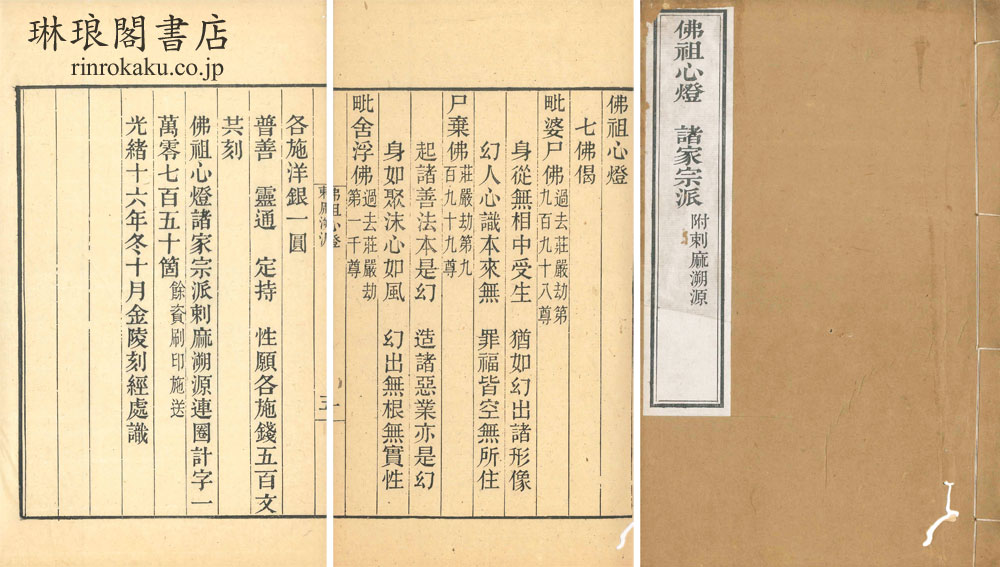 琳琅閣書店
rinrokaku.co.jp
佛祖心燈　諸家宗派
附刺麻溯源
佛祖心燈
七佛偈
毗婆尸佛
過去莊嚴劫第
九百九十八尊
身從無相中受生　猶如幻出諸形像
幻人心識本來無　罪福皆空無所住
尸棄佛
莊嚴劫第九
百九十九尊
起諸善法本是幻　造諸惡業亦是幻
身如聚沫心如風　幻出無根無實性
毗舍浮佛
過去莊嚴劫
第一千尊
一
三
各施洋銀一圓
普善　靈通　定持　性願各施錢五百文
共刻
佛祖心燈諸家宗派刺麻溯源連圈計字一
萬零七百五十箇
餘資刷印施送
光緒十六年冬十月金陵刻經處識